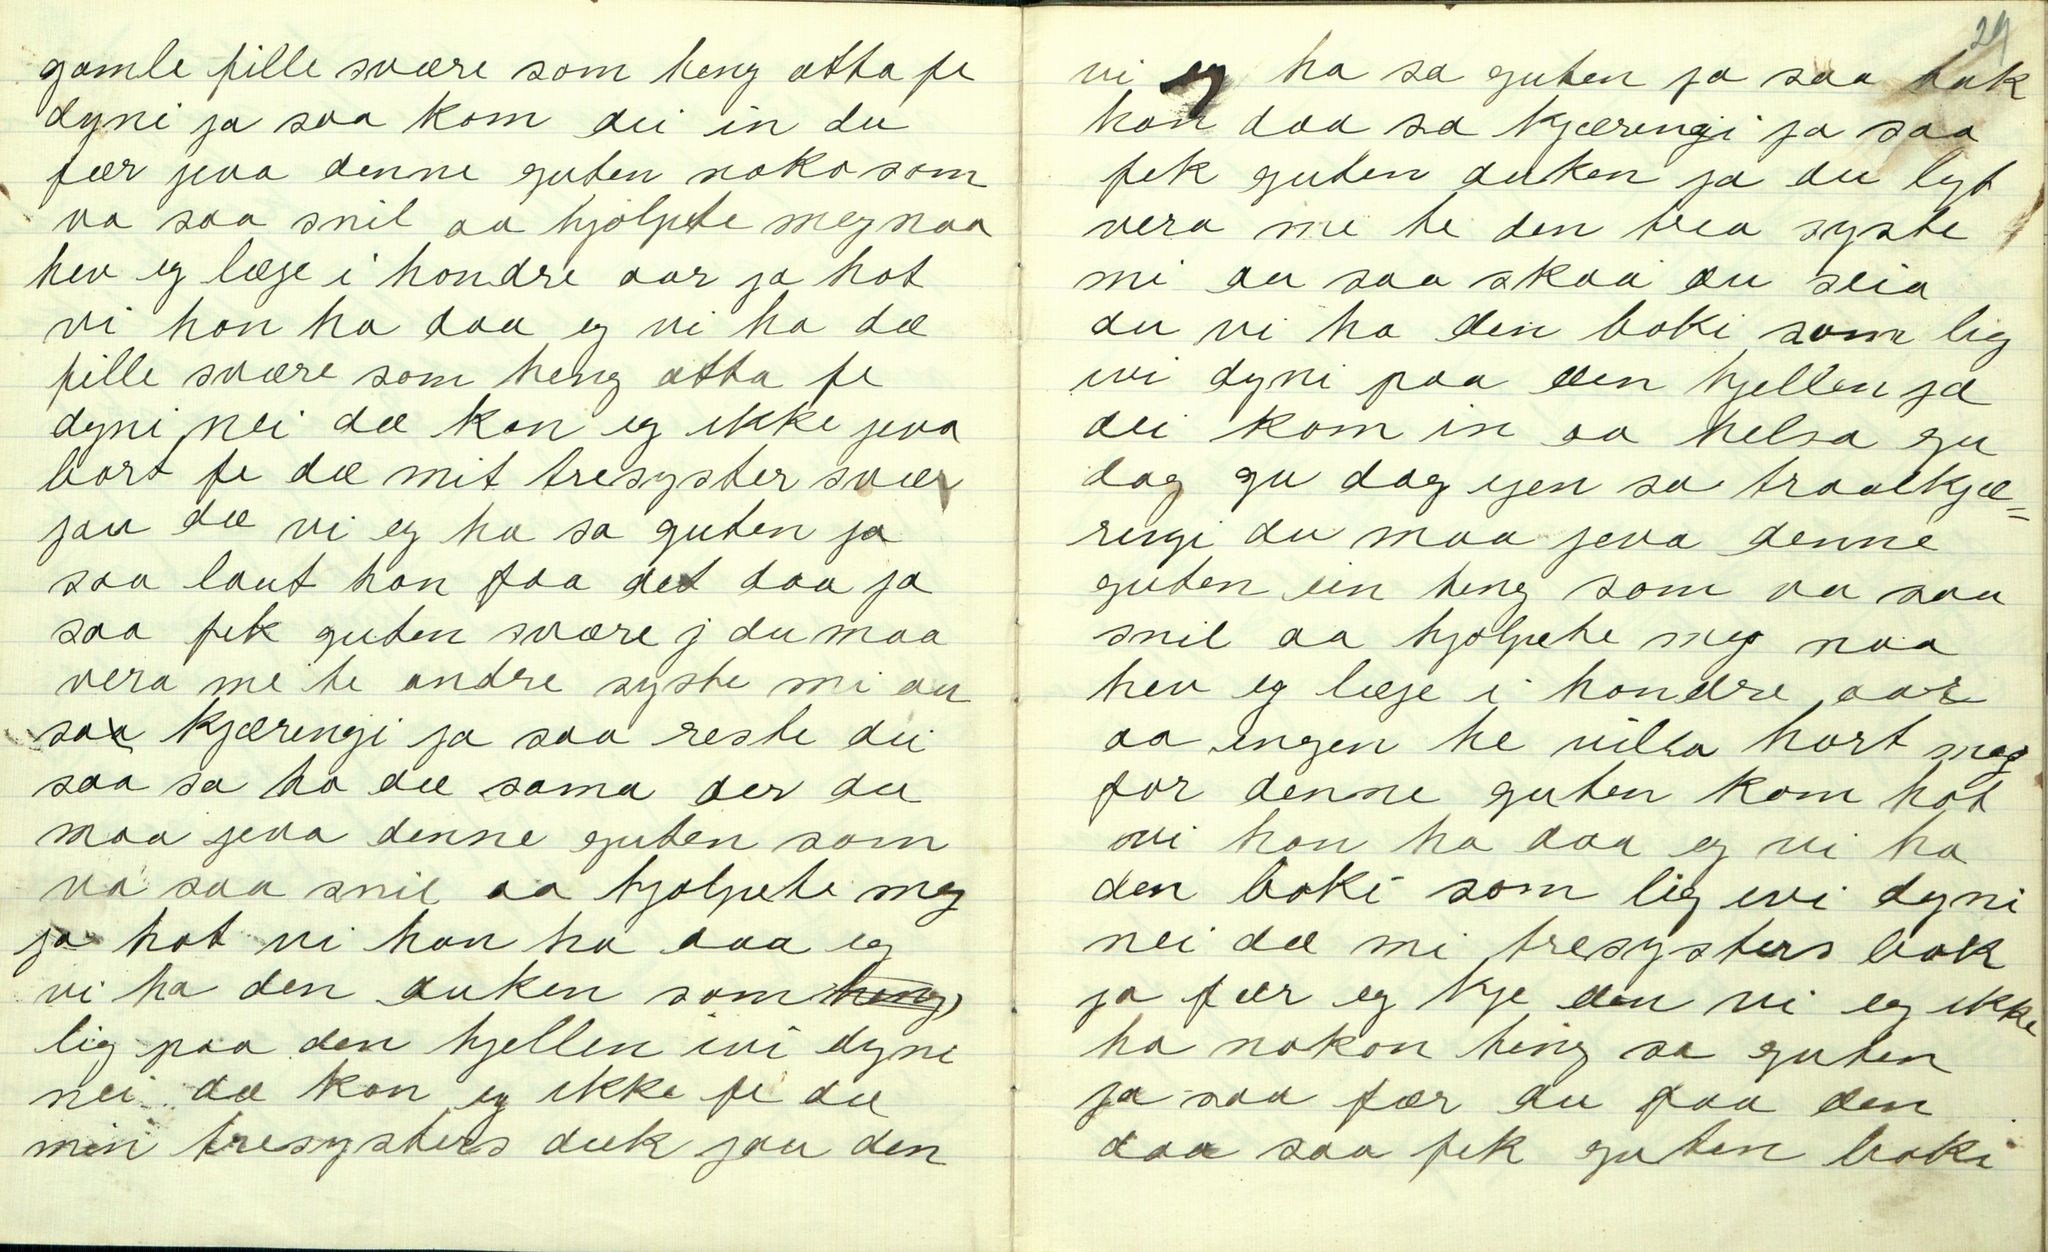 gamle fille svære som heng atta fe
dyni ja saa kom dei in du
fær jeva denne guten noko som
va saa snil aa hjölpte meg naa
hev eg læge i hondre aar ja hot
vi hon ha daa eg vi ha dæ
fille svære som heng atta fe
dyni, nei dæ kan eg ikke jeva
bort fe dæ mit tresyster svær
jau dæ vi eg ha sa guten ja
saa laut hon faa det daa ja
saa fek guten svære j du maa
vera me te andre syste mi au
saa kjærengi ja saa reste dei
saa sa ho dæ sama der du
maa jeva denne guten som
va saa snil aa hjolpete meg
ja hot vi han ha daa eg
vi ha den duken som heng
lig paa den hjellen ivi dyne
nei dæ kan eg ikke fe dæ
min tresysters duk jau den
29
vi eg ha sa guten ja saa tak
han daa sa kjærengi ja saa
fek guten duken ja du lyt
vera me te den trea syste
mi au saa skaa du seia
du vi ha den boki som lig
ivi dyni paa den hjellen ja
dei kom in aa helsa gu
dag gu dag igen sa traalkjæ=
rengi du maa jeva denne
guten ein teng som va saa
snil aa hjolpete meg naa
hev eg læge i hondre aar
aa engen he vilsa hort meg
for denne guten kom hot
vi han ha daa eg vi ha
den boki som lig ivi dyni
nei dæ mi tresysters bok
ja fær eg kje den vi eg ikke
ha nokon ting sa guten
ja saa fær du faa den
daa saa fek guten boki